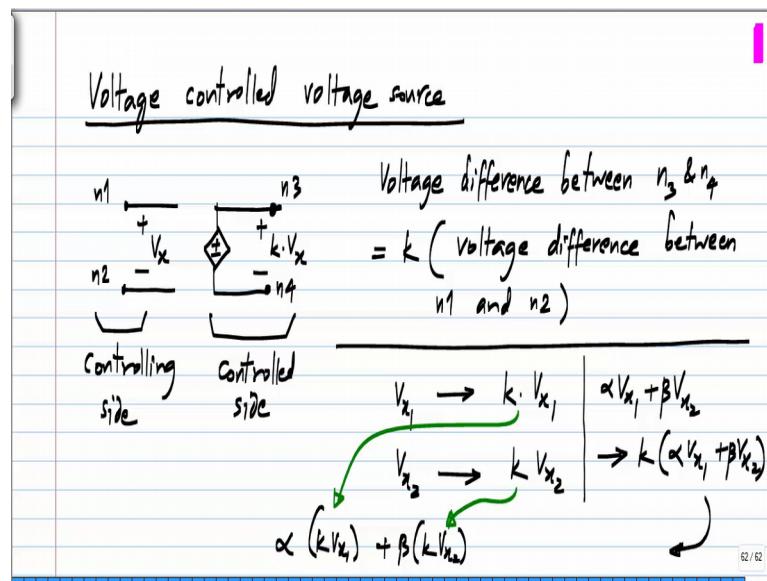 Voltage controlled voltage source
n1
+
Vx
−
n2
±
n3
+
k·Vx
−
n4
Controlling
side
Controlled
side
Voltage difference between n3 & n4
= k ( voltage difference between
n1 and n2 )
Vx1 → k· Vx1
Vx2 → k Vx2
αVx1 + βVx2
→ k(αVx1 + βVx2)
α (kVx1) + β(kVx2)
62 / 62